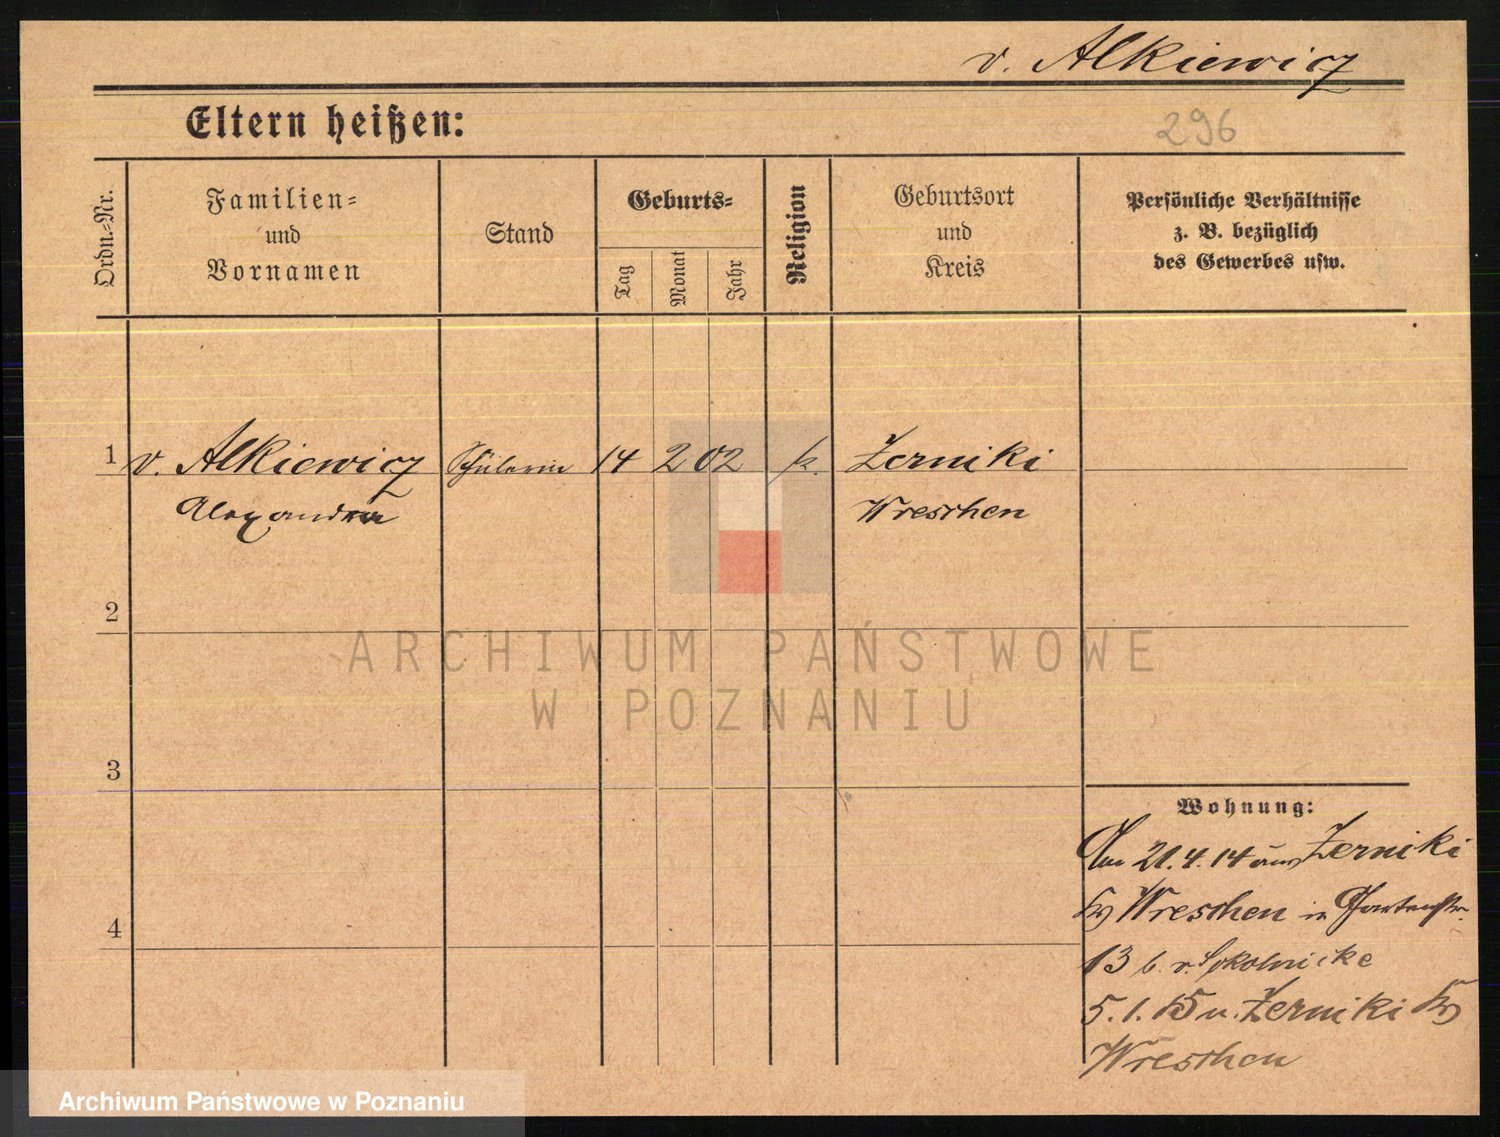 v. Alkiewicz
296
Eltern heißen:
Ordn.-Nr.
Familien-
und
Vornamen
Stand
Geburts-
Tag
Monat
Jahr
Religion
Geburtsort
und
Kreis
Persönliche Verhältnisse
z. B. bezüglich
des Gewerbes usw.
1 v. Alkiewicz Schülerin 14 2 02 k. Zerniki
Alexandra Wreschen
2
ARCHIWUM PAŃSTWOWE
W POZNANIU
3
Wohnung:
Am 21.4.14 aus Zerniki
Kr Wreschen in Gartenstr.
13 b. v. Sokolnicke
5.1.15 n. Zerniki Kr
Wreschen
4
Archiwum Państwowe w Poznaniu